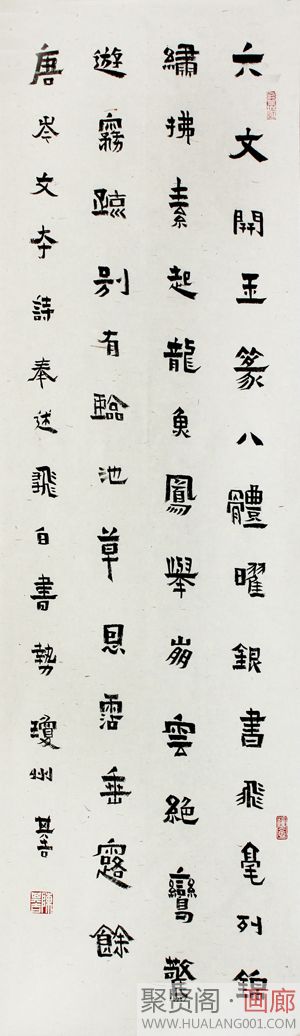 六文開玉篆八體曜銀書飛毫列錦
繡拂素起龍魚鳳舉崩雲絕鸞驚
遊霧踈別有臨池草恩霑垂露餘
唐岑文夲詩奉述飛白書勢瓊州其
聚贤阁·画廊
WWW.HUALANG001.COM